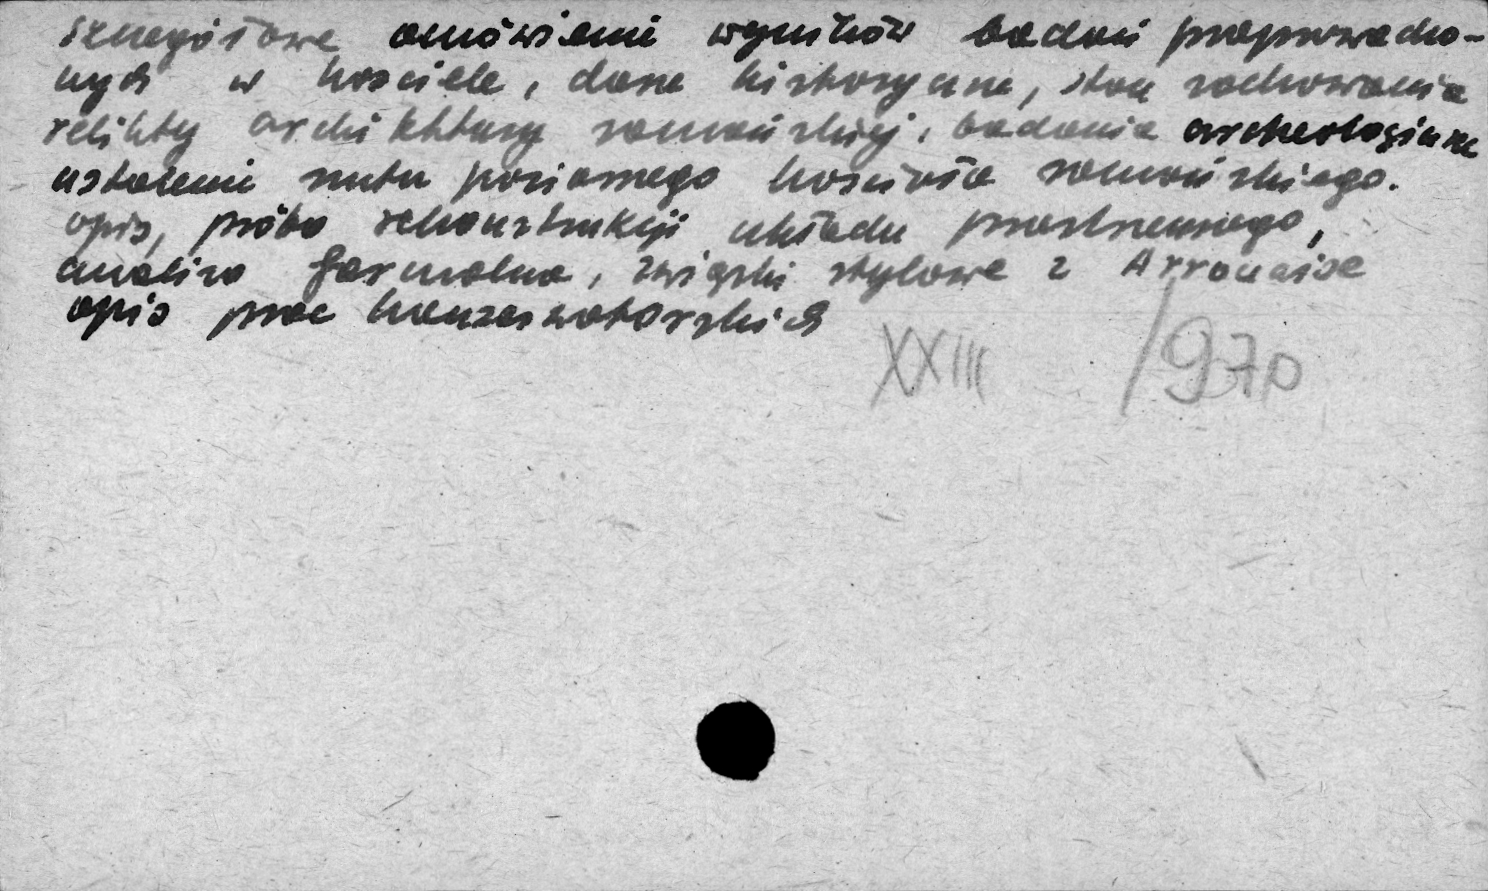 szczegółowe omówienie wyników badań przeprowadzo-
nych w kościele, dane historyczne, stan zachowania
relikty architektury romańskiej, badania archeologiczne
ustalenie rzutu poziomego kościoła romańskiego.
opis, próba rekonstrukcji układu przestrzennego,
analiza formalna, związki stylowe z Arrouaise
opis prac konserwatorskich
XXIII /970